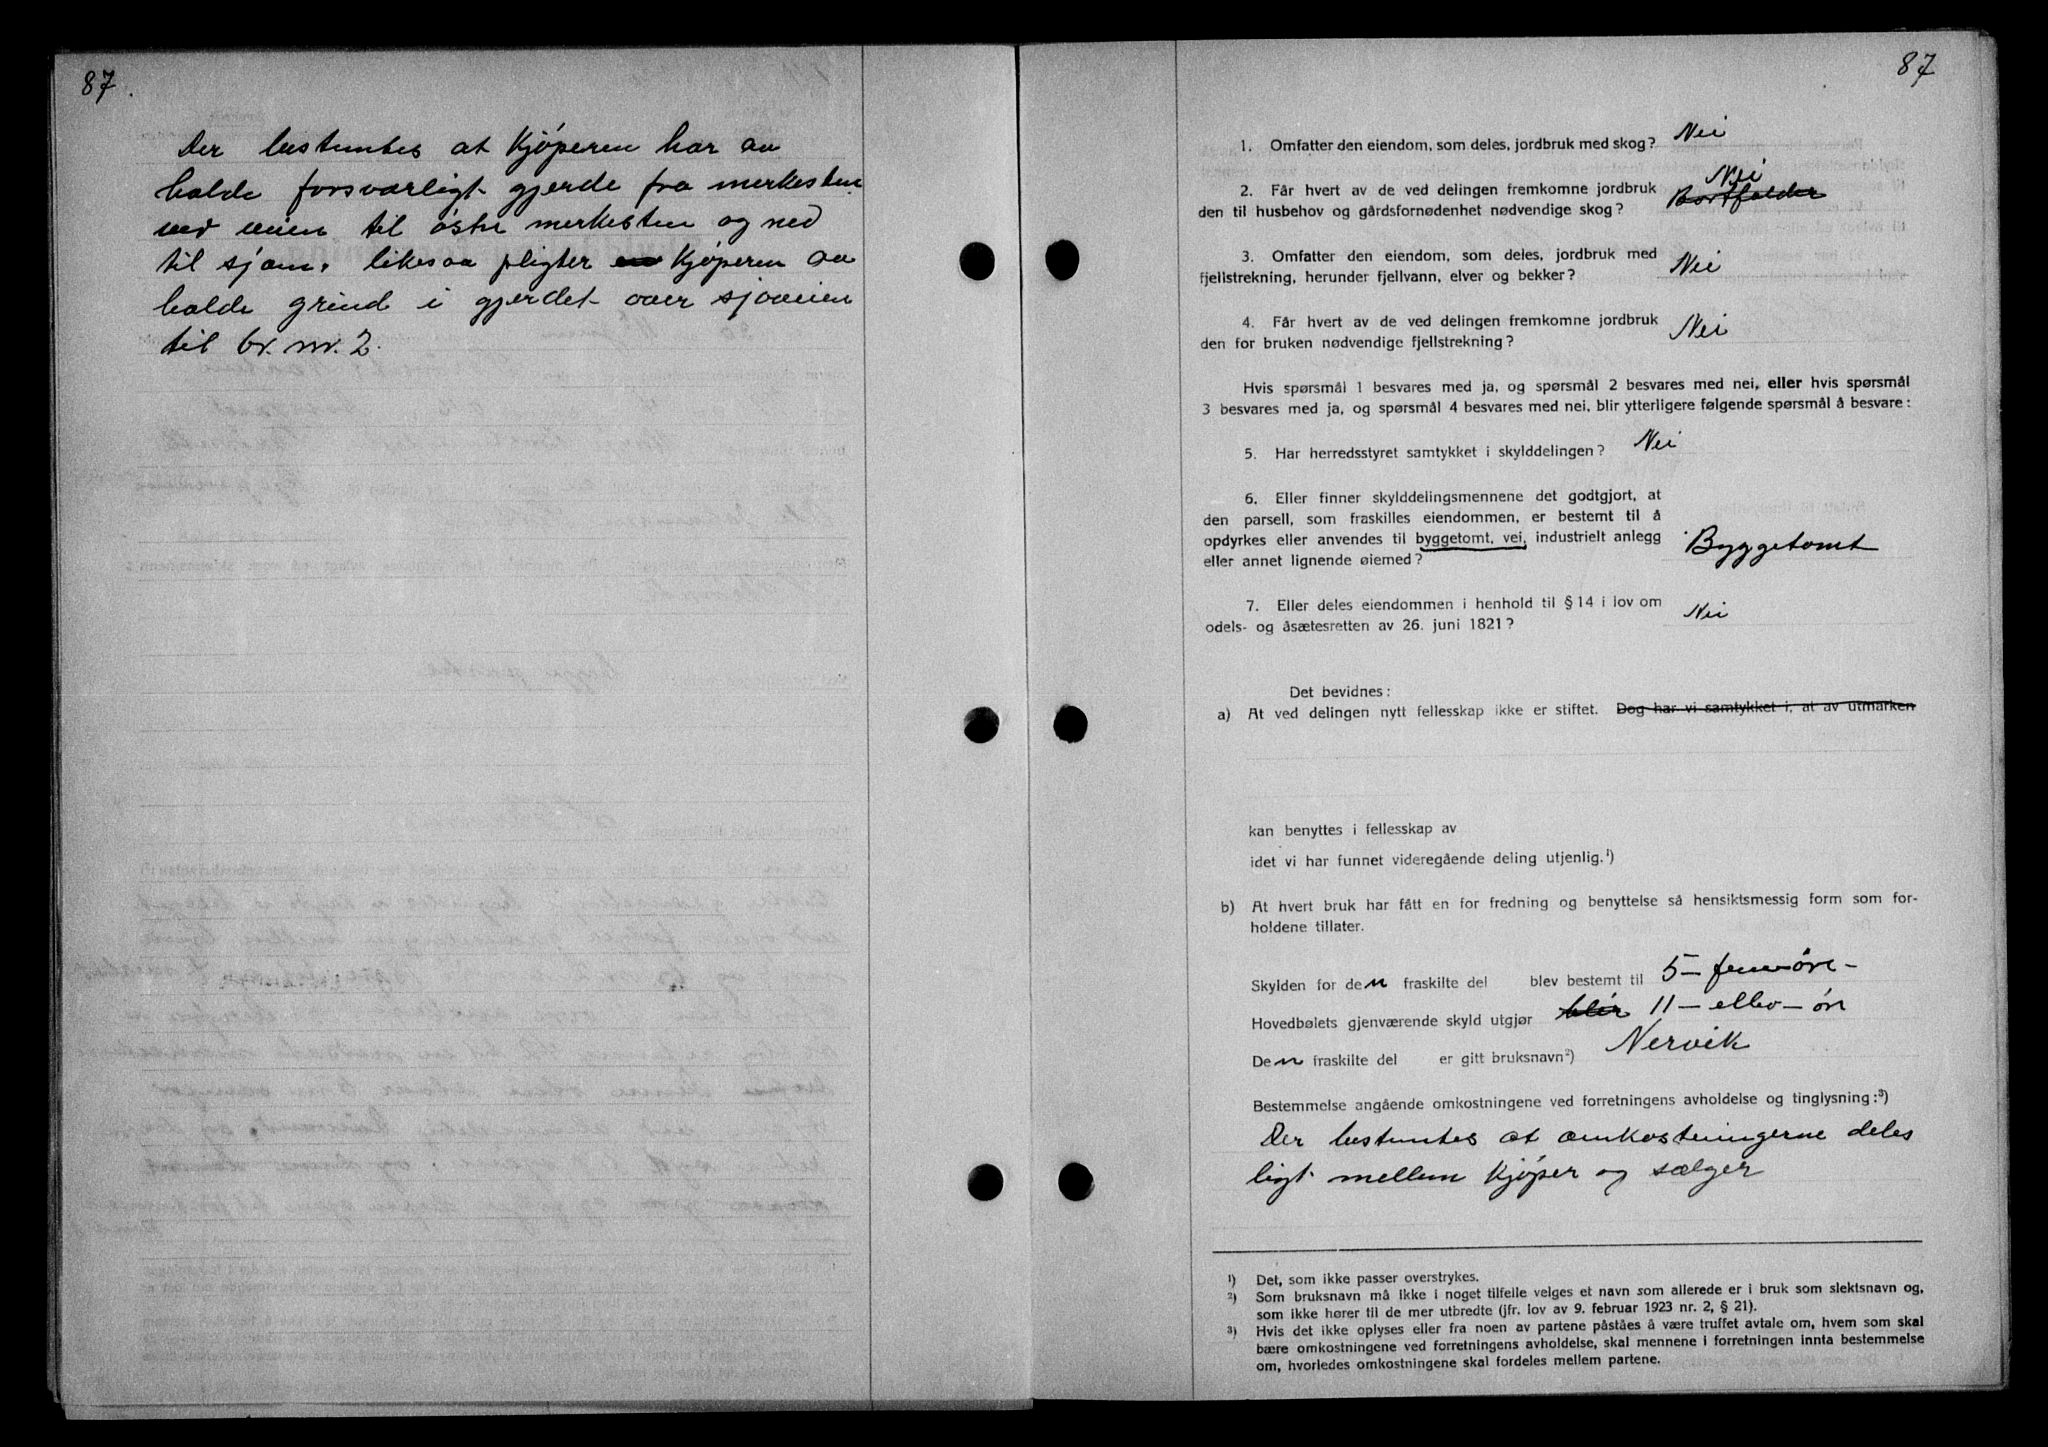 87.
Der bestemtes at Kjøperen har aa
holde forsvarligt gjerde fra merkesten
ved veien til østre merkesten og ned
til sjøen. likesaa pligter Kjøperen aa
holde grind i gjerdet over sjøveien
til br. nr. 2.
87
1. Omfatter den eiendom, som deles, jordbruk med skog? Nei
2. Får hvert av de ved delingen fremkomne jordbruk Nei
den til husbehov og gårdsfornødenhet nødvendige skog? Bortfalder
3. Omfatter den eiendom, som deles, jordbruk med
fjellstrekning, herunder fjellvann, elver og bekker? Nei
4. Får hvert av de ved delingen fremkomne jordbruk
den for bruken nødvendige fjellstrekning? Nei
Hvis spørsmål 1 besvares med ja, og spørsmål 2 besvares med nei, eller hvis spørsmål
3 besvares med ja, og spørsmål 4 besvares med nei, blir ytterligere følgende spørsmål å besvare:
5. Har herredsstyret samtykket i skylddelingen? Nei
6. Eller finner skylddelingsmennene det godtgjort, at
den parsell, som fraskilles eiendommen, er bestemt til å
opdyrkes eller anvendes til byggetomt, vei, industrielt anlegg
eller annet lignende øiemed? Byggetomt
7. Eller deles eiendommen i henhold til § 14 i lov om
odels- og åsætesretten av 26. juni 1821? Nei
Det bevidnes:
a) At ved delingen nytt fellesskap ikke er stiftet. Dog har vi samtykket i, at av utmarken
kan benyttes i fellesskap av
idet vi har funnet videregående deling utjenlig.¹)
b) At hvert bruk har fått en for fredning og benyttelse så hensiktsmessig form som for-
holdene tillater.
Skylden for den fraskilte del blev bestemt til 5 – fem – øre –
Hovedbølets gjenværende skyld utgjør blir 11 – ellev – øre
Den fraskilte del er gitt bruksnavn²) Nervik
Bestemmelse angående omkostningene ved forretningens avholdelse og tinglysning:³)
Der bestemtes at omkostningerne deles
ligt mellem Kjøper og sælger
¹) Det, som ikke passer overstrykes.
²) Som bruksnavn må ikke i noget tilfelle velges et navn som allerede er i bruk som slektsnavn og,
som ikke hører til de mer utbredte (jfr. lov av 9. februar 1923 nr. 2, § 21).
³) Hvis det ikke oplyses eller fra noen av partene påståes å være truffet avtale om, hvem som skal
bære omkostningene ved forretningens avholdelse, skal mennene i forretningen innta bestemmelse
om, hvorledes omkostningene skal fordeles mellem partene.